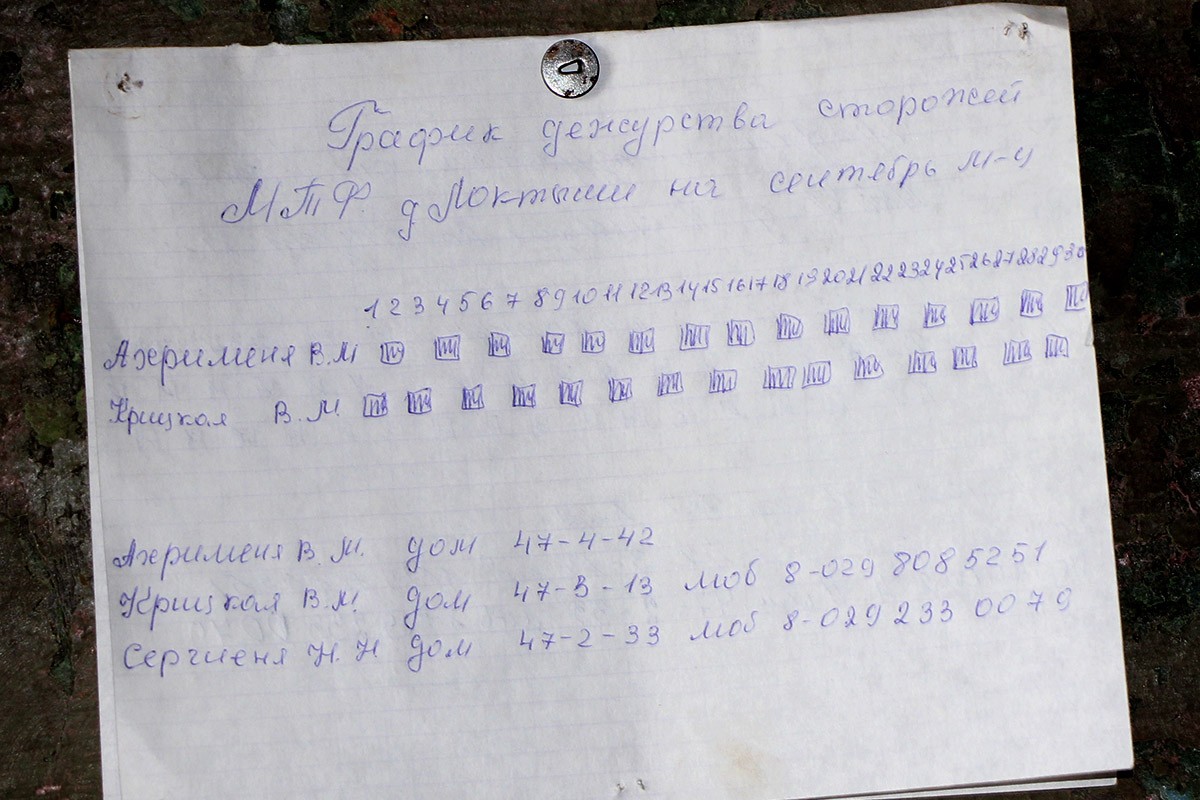 График дежурства сторожей
МТФ д Локтыши на сентябрь м-ц
1 2 3 4 5 6 7 8 9 10 11 12 13 14 15 16 17 18 19 20 21 22 23 24 25 26 27 28 29 30
Ахрименя В.М
Крицкая В.М.
Ахрименя В.М. дом 47-4-42
Крицкая В.М. дом 47-3-13 моб 8-029 808 52 51
Сергиеня Н.Н дом 47-2-33 моб 8-029 233 00 79